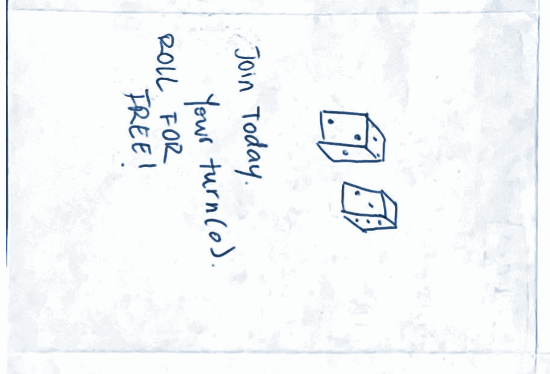 Join Today.
Your turn(o).
ROLL FOR
FREE!